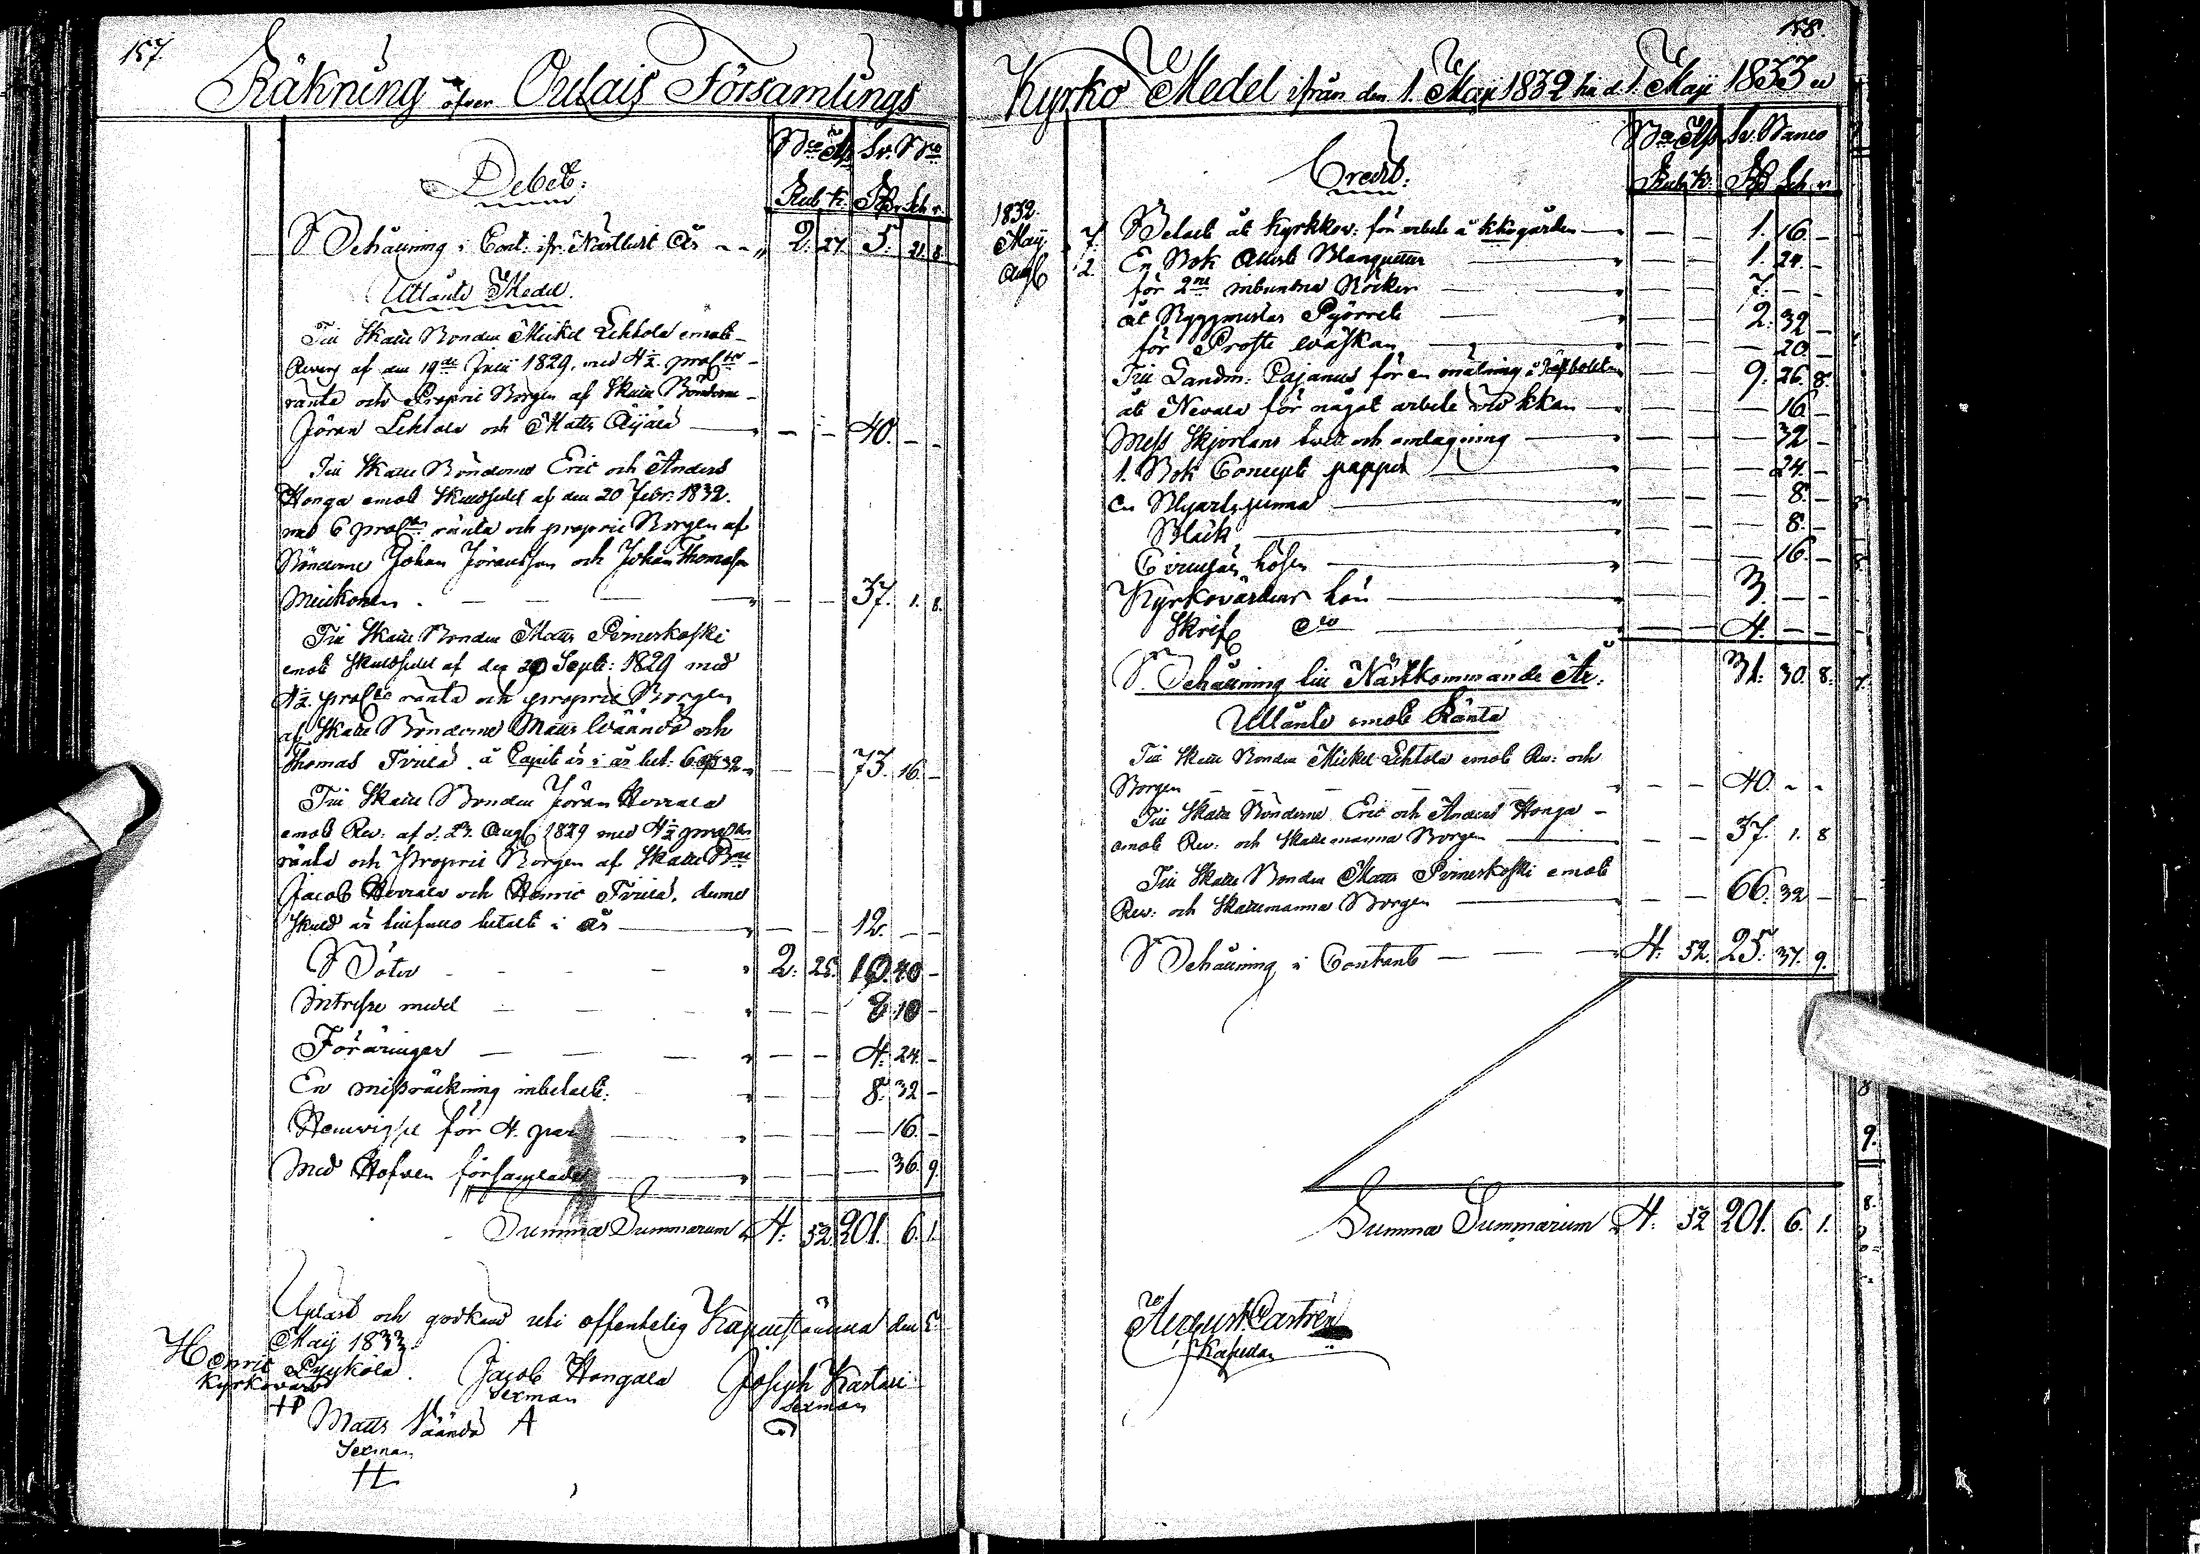 157.
Räkning öfver Oulais Församlings
Debet:
Bco Ass. Sv. Bco
Rub. k. Rd. Sch. r.
Behållning i Cont. ifr. Nästlidit År 2. 27. 5. 21. 8.
Utlånte Medel.
Till Skatte Bonden Mickel Lehtola emot
Revers af den 19de Julii 1829, med 4½ proCto
ränta och Proprie Borgen af Skatte Bönderne
Jöran Lehtola och Matts Äijälä — — 40. — —
Till Skatte Bönderne Eric och Anders
Honga emot Skuldsedel af den 20 Febr: 1832.
med 6 proCto ränta och proprie Borgen af
Bönderne Johan Jöransson och Johan Thomasson
— — 37. 1. 8.
Till Skatte Bonden Matts Pirneskoski
emot Skuldsedel af den 29 Sept: 1829 med
4½ proCto ränta och proprie Borgen
af Skatte Bönderne Matts Wäändö och
Thomas å Capit. är i år bet. 6 Rd 32 — — 73. 16. —
Till Skatte Bonden Jöran
emot Rev: af d. 23. Aug: 1829 med 4½ proCto
ränta och Proprie Borgen af Skatte Bne
Jacob och Henric denne
Skuld är tillfullo betalt i år — — 12. — —
Böter 2. 25. 10. 40 —
Intresse medel — — 8. 10 —
Föräringar — — 4. 24. —
En missräckning inbetalt: — — 8. 32 —
för 4. par — — — 16. —
Med Hofven församlade — — — 36. 9.
Summa Summarum 4. 52. 201. 6. 1.
Upläst och godkänd uti offentelig den 5
Maij 1833.
Henric Pyykölä. Jacob Hongala Joseph Kastari
Kyrkovärd Sexman Sexman
HP
Matts Väändö A
Sexman
H
158.
Kyrko Medel ifrån den 1. Maij 1832 till d. 1. Maij 1833
Credit:
Bco Ass. Sv. Banco
Rub. k. Rd. Sch. r.
1832.
Maij 7. Betalt åt Kyrkkov: för arbete å kkogården — — 1. 16. —
Aug 2. En Bok Attest Blanquetter — — 1. 24. —
för 2ne inbundna Böcker — — 7. — —
åt Byggmästar Pyörret — — 2. 32 —
för Proste wäskan — — — 20. —
Till Landtm: Cajanus för en mätning — — 9. 26. 8.
åt Nevala för något arbete vid kkan — — — 16. —
Mess Skjortans tvätt och omlagning — — — 32 —
1. Bok Concept papper — — — 24. —
en Blyartspenna — — — 8. —
Bläck — — — 8. —
— — — 16. —
Kyrkovärdens lön — — 3. — —
Skrif do — — 4. — —
31. 30. 8.
Behållning till Nästkommande År:
Utlånte emot Ränta
Till Skatte Bonden Mickel Lehtola emot Rev: och
Borgen — — 40. — —
Till Skatte Bönderne Eric och Anders Honga
emot Rev: och Skattemanna Borgen — — 37. 1. 8
Till Skatte Bonden Matts Pirneskoski emot
Rev: och Skattemanna Borgen — — 66. 32 —
Behållning i Contant 4. 52. 25. 37. 9.
Summa Summarum 4. 52 201. 6. 1.
August Castrén
Kapellan